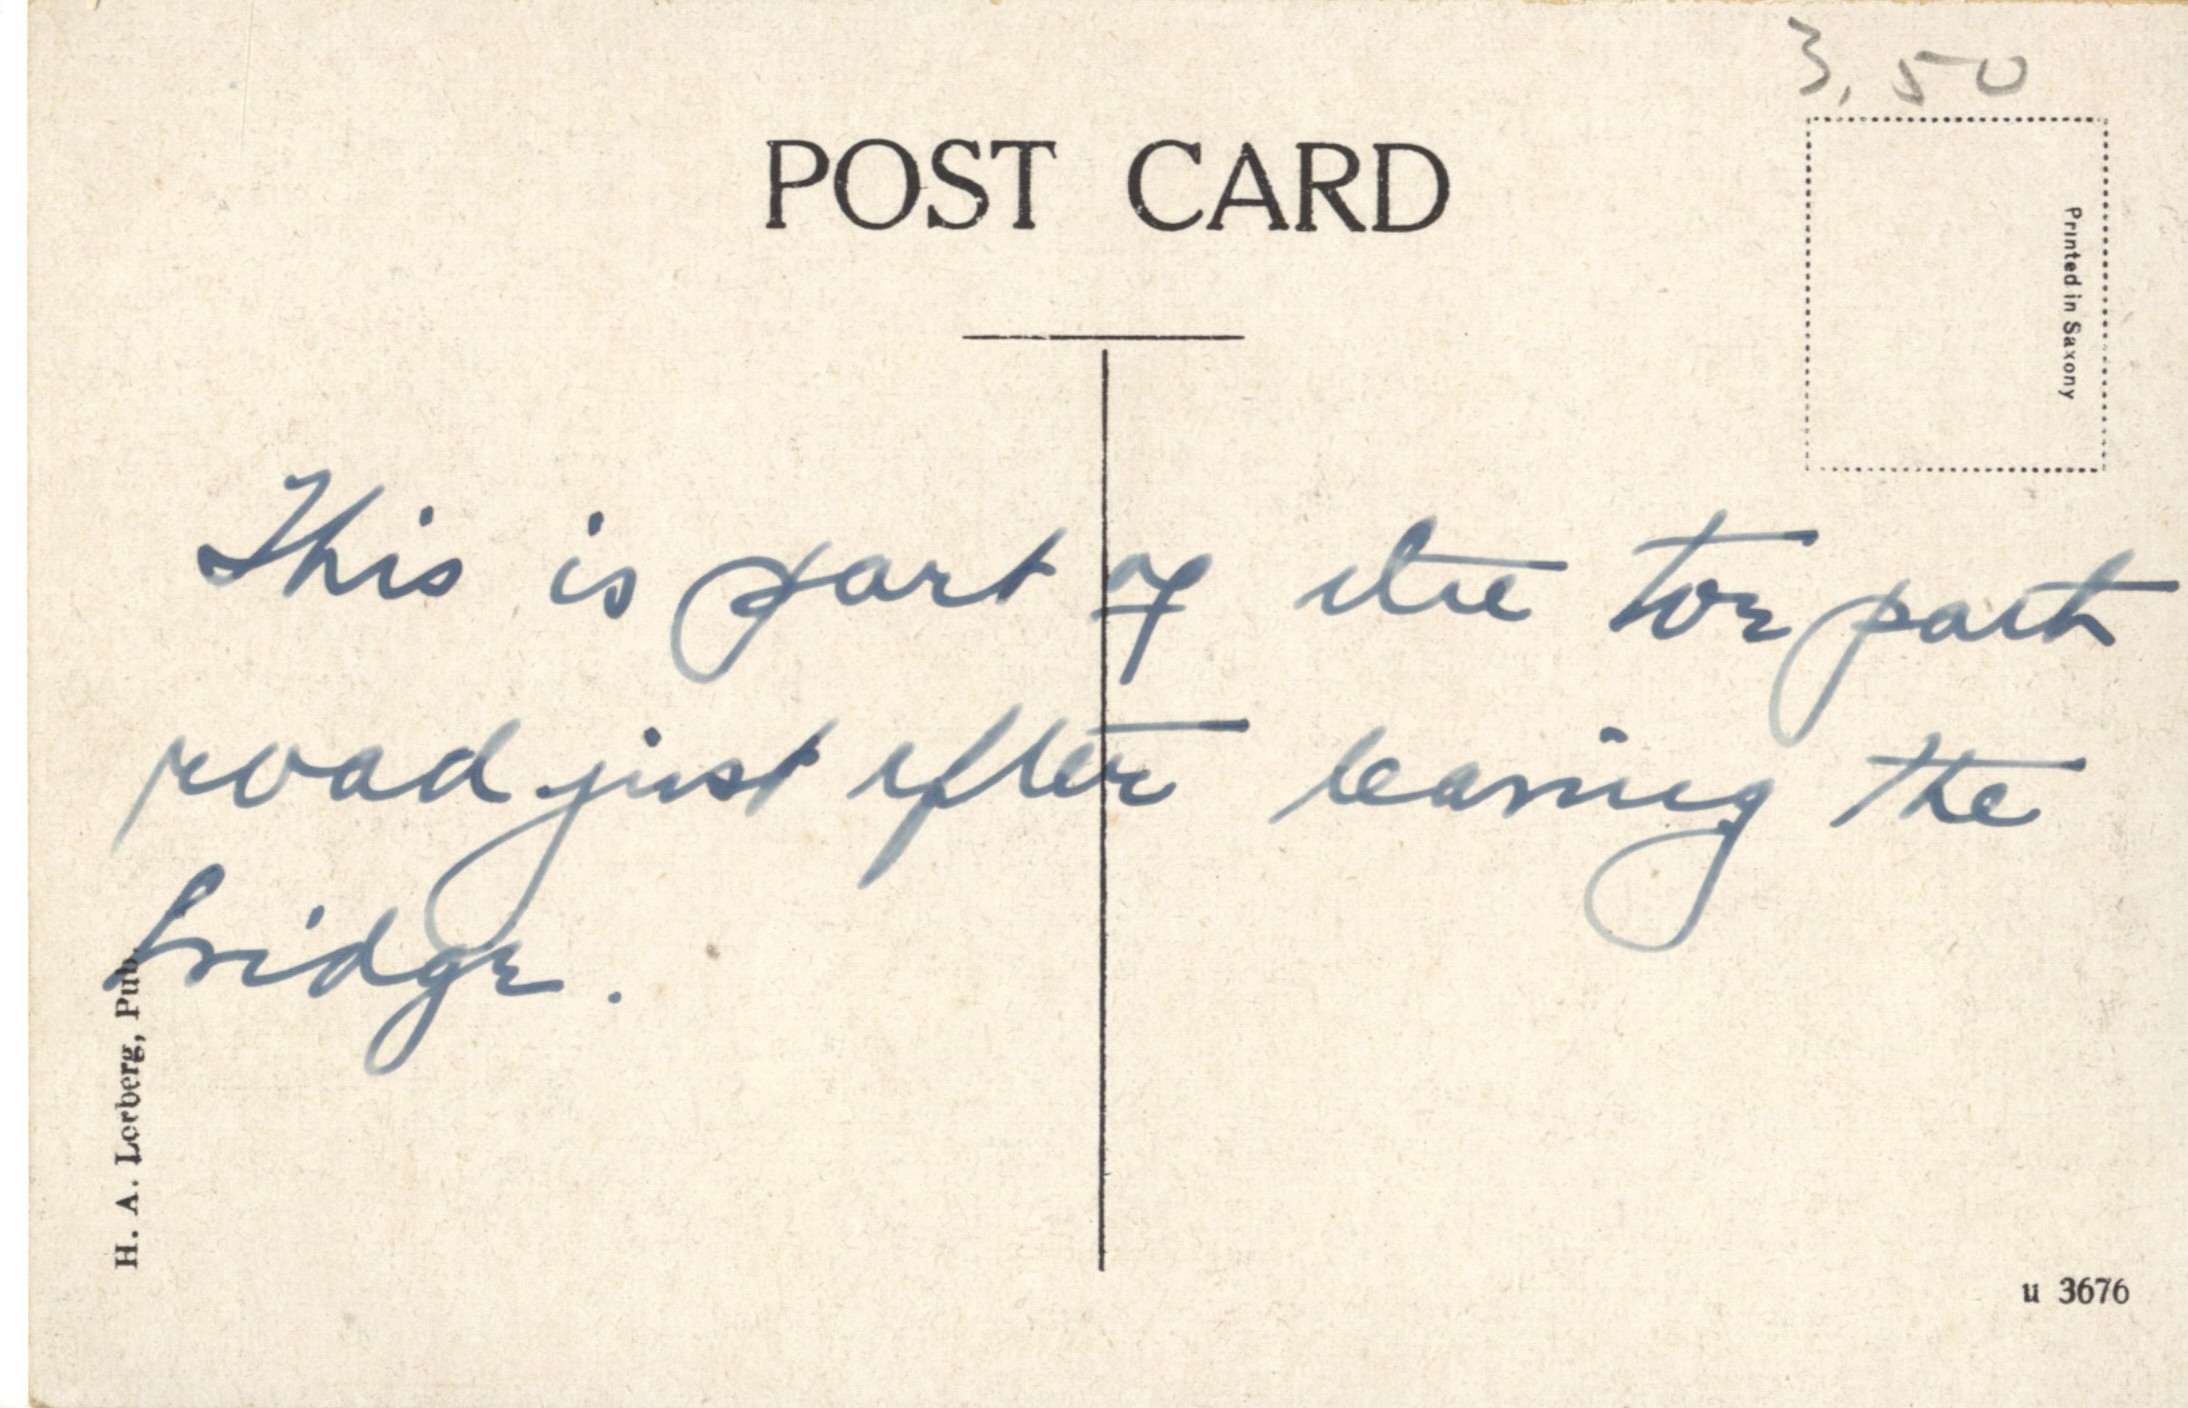 3.50
POST CARD
Printed in Saxony
This is part of the tow path
road just after leaving the
bridge.
H. A. Lorberg, Pub.
u 3676